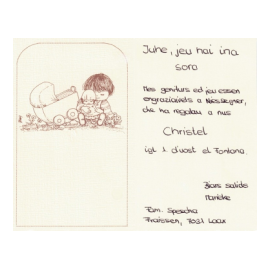 Juhe, jeu hai ina
sora
Mes geniturs ed jeu essen
engraziaivels a Nessegner,
che ha regalau a nus
Christel
igl 1. d'uost el Fontana.
Biars salids
Marieke
Fam. Spescha
Fraissen, 7031 Laax